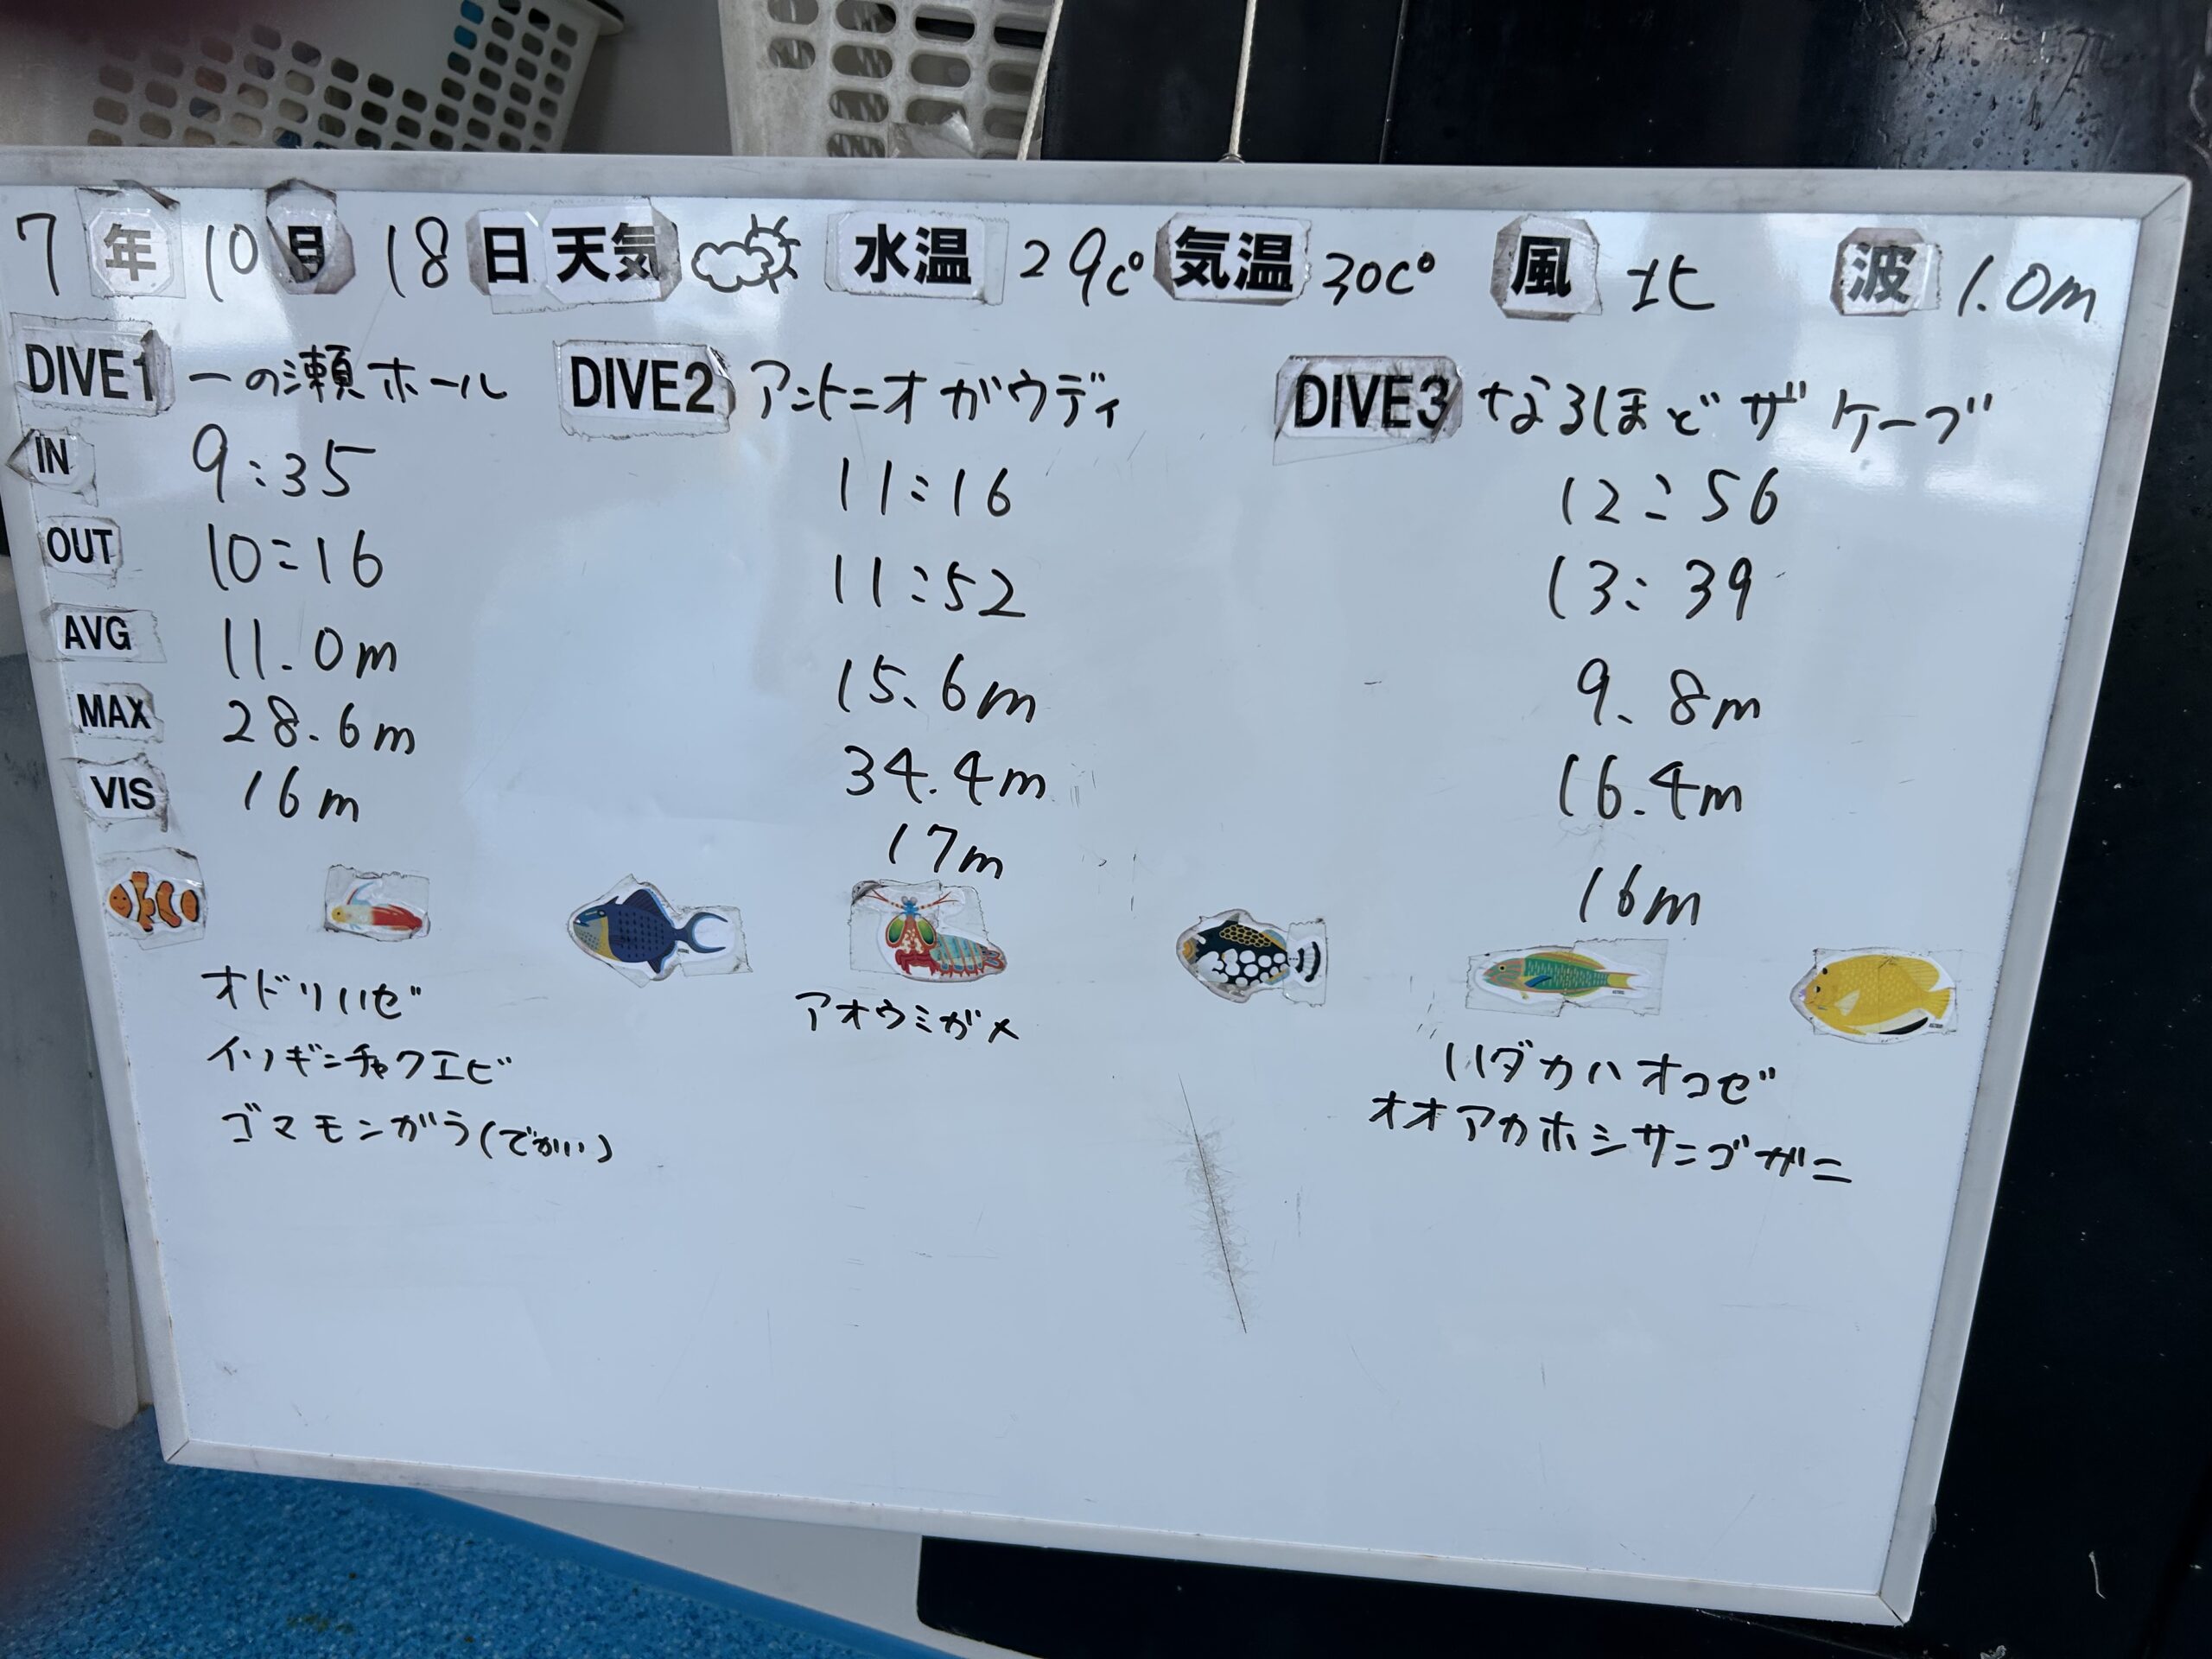 7年 10月 18日 天気 水温 29c° 気温 30c° 風 北 波 1.0m
DIVE1 一の瀬ホール DIVE2 アントニオガウディ DIVE3 なるほどザケーブ
IN 9:35 11:16 12:56
OUT 10:16 11:52 13:39
AVG 11.0m 15.6m 9.8m
MAX 28.6m 34.4m 16.4m
VIS 16m 17m 16m
オドリハゼ アオウミガメ ハダカハオコゼ
イソギンチャクエビ オオアカホシサンゴガニ
ゴマモンガラ(でかい)